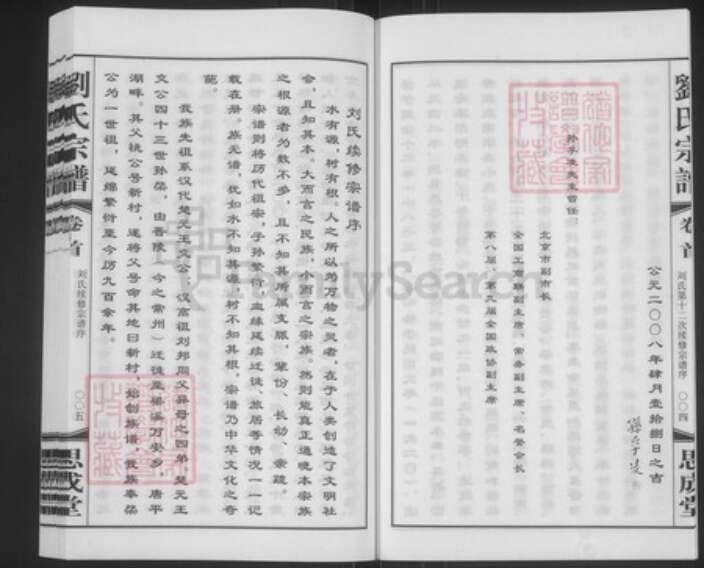 劉氏宗譜
卷首
刘氏第十二次续修宗谱序
〇〇四
思成堂
公元二〇〇八年肆月壹拾捌日之吉
孙孚凌先生曾任：
北京市副市长
全国工商联副主席、常务副主席、名誉会长
第八届、第九届全国政协副主席
刘氏续修宗谱序
水有源，树有根。人之所以为万物之灵者，在于人类创造了文明社
会，且知其本。大而言之民族，小而言之宗族。然则能真正通晓本宗族
之根源者为数不多，且不知其所属支脉、辈份、长幼、亲疏。
宗谱则将历代祖宗，子孙繁衍，血缘延续迁徙、旅居等情况一一记
载在册。族无谱，犹如水不知其源，树不知其根。宗谱乃中华文化之奇
葩。
我族先祖系汉代楚元王交公，汉高祖刘邦同父异母之四弟。楚元王
交公四十三世孙荣，由晋陵（今之常州）迁徙至梁溪万安乡，唐平
湖畔。其父桃公号新村，遂将父号命其地曰新村，始创族谱，我族奉荣
公为一世祖，延绵繁衍至今历九百余年。
劉氏宗譜
卷首
刘氏续修宗谱序
〇〇五
思成堂
FamilySearch